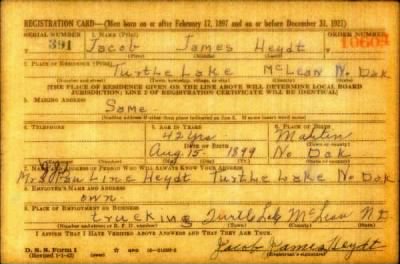 REGISTRATION CARD—(Men born on or after February 17, 1897 and on or before December 31, 1921)
SERIAL NUMBER 1. NAME (Print) ORDER NUMBER
391 Jacob James Heydt
(First) (Middle) (Last)
2. PLACE OF RESIDENCE (Print)
Turtle Lake McLean No Dak
(Number and street) (Town, township, village, or city) (County) (State)
[THE PLACE OF RESIDENCE GIVEN ON THE LINE ABOVE WILL DETERMINE LOCAL BOARD
JURISDICTION; LINE 2 OF REGISTRATION CERTIFICATE WILL BE IDENTICAL]
3. MAILING ADDRESS
Same
(Mailing address if other than place indicated on line 2. If same insert word same)
4. TELEPHONE 5. AGE IN YEARS 6. PLACE OF BIRTH
42 yrs Martin
DATE OF BIRTH
Aug 15 1899 No Dak
7. NAME AND ADDRESS OF PERSON WHO WILL ALWAYS KNOW YOUR ADDRESS
Mrs Heydt Turtle Lake No Dak
8. EMPLOYER'S NAME AND ADDRESS
own
9. PLACE OF EMPLOYMENT OR BUSINESS
trucking Turtle Lake McLean N D
(Number and street or R. F. D. number) (Town) (County) (State)
I AFFIRM THAT I HAVE VERIFIED ABOVE ANSWERS AND THAT THEY ARE TRUE.
D. S. S. Form 1
(Revised 1-1-42) (over)
Jacob James Heydt
(Registrant's signature)